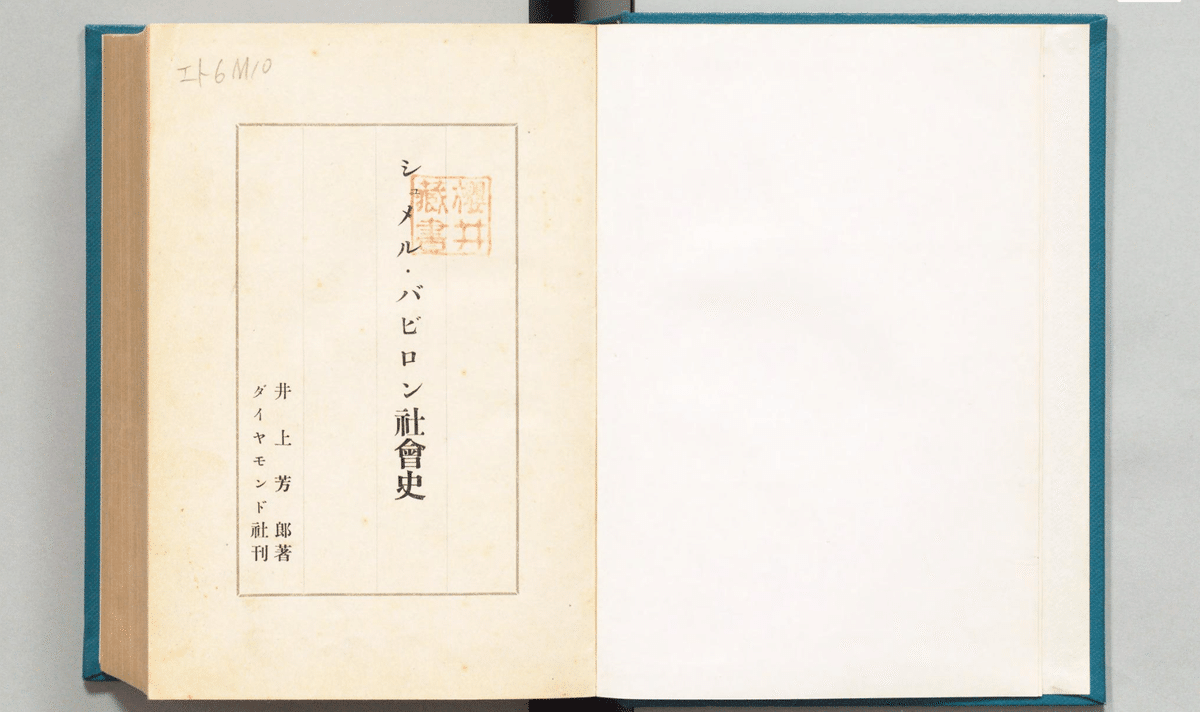 エト6M10
シュメル・バビロン社會史
櫻井
藏書
井上芳郎著
ダイヤモンド社刊